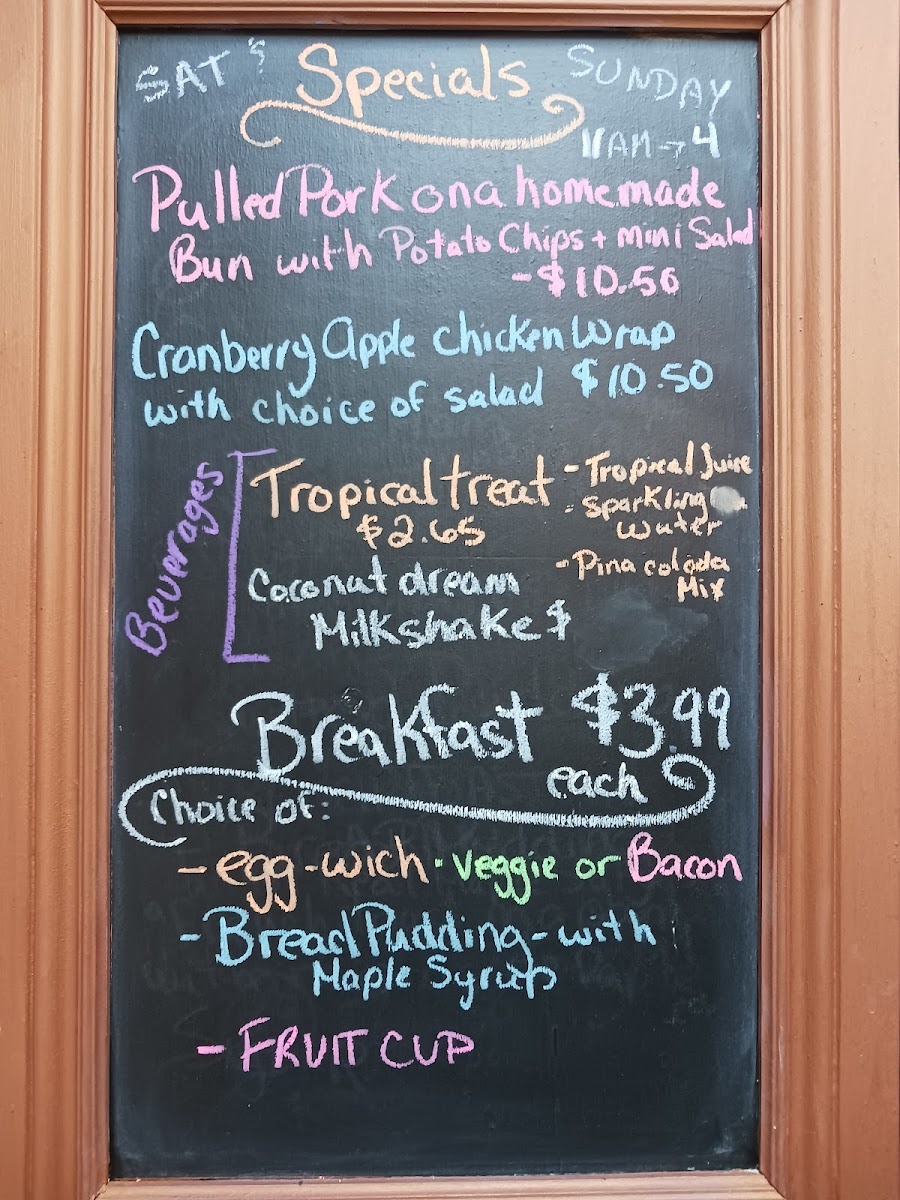 SAT & Specials SUNDAY
11AM → 4
Pulled Pork on a homemade
Bun with Potato Chips + mini Salad
- $10.50
Cranberry Apple chicken wrap
with choice of salad $10.50
Beverages
Tropical treat
$2.65
- Tropical Juice
- Sparkling
water
- Pina colada
Mix
Coconut dream
Milkshake $
Breakfast $3.99
each
Choice of:
- egg-wich · veggie or Bacon
- Bread Pudding - with
Maple Syrup
- FRUIT CUP